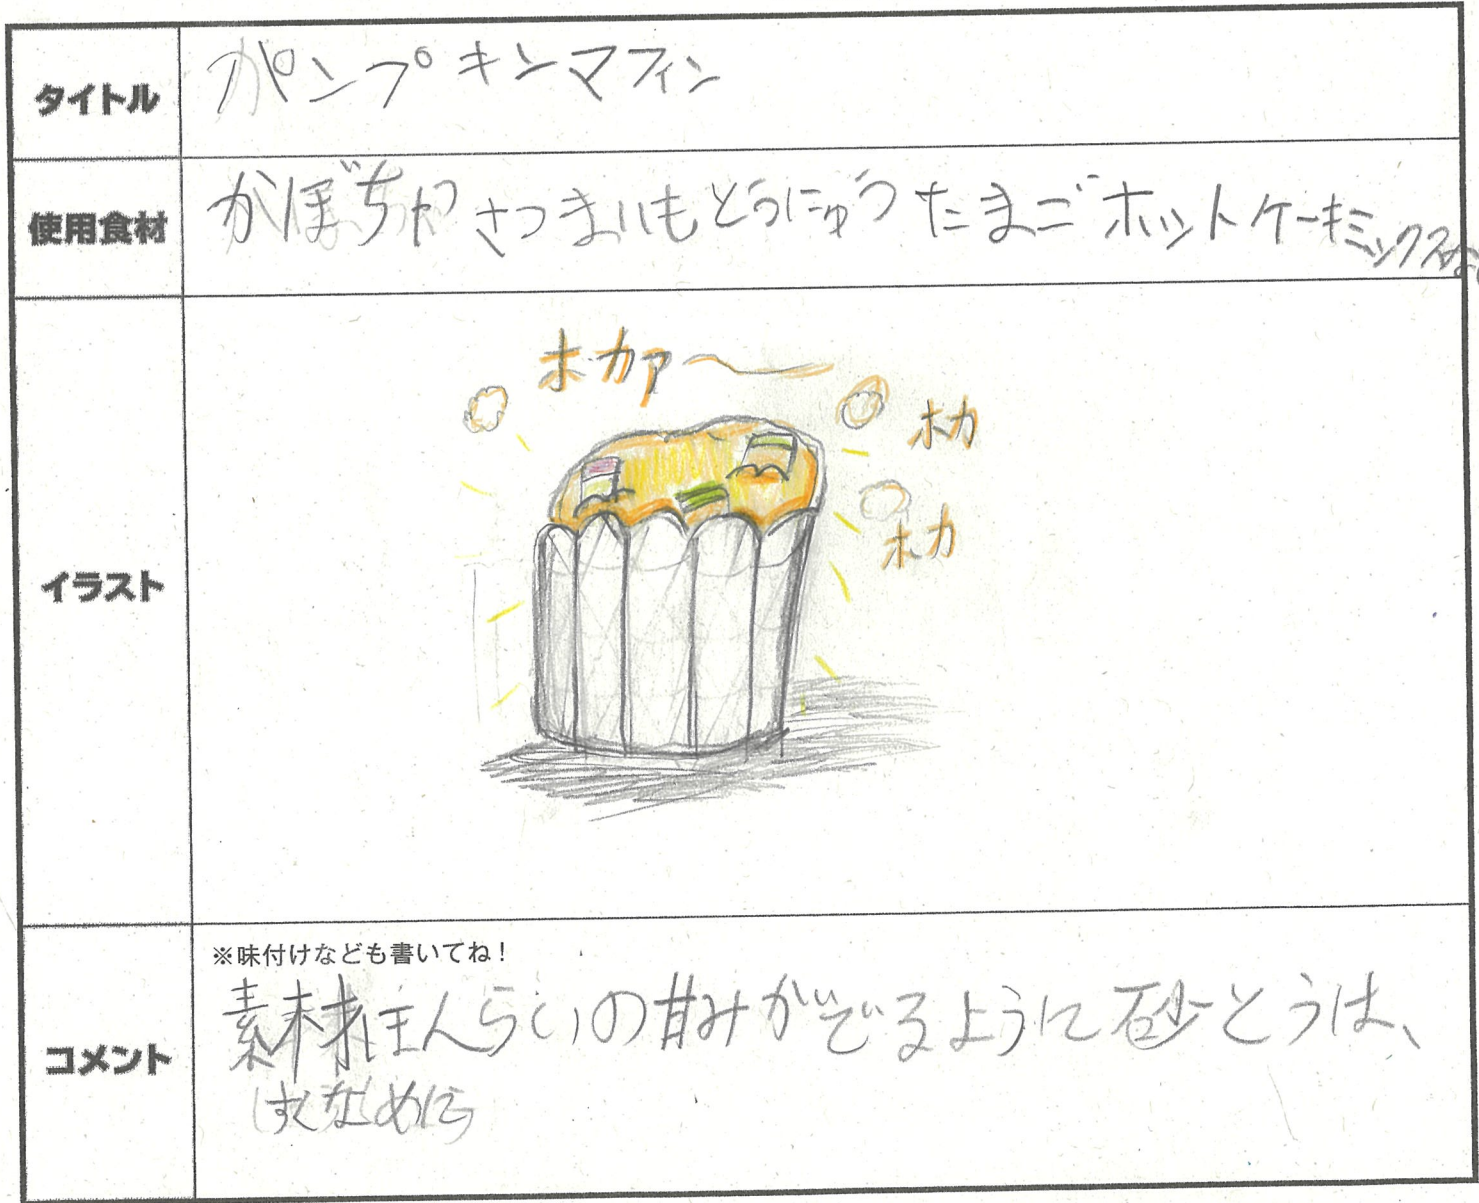 タイトル
パンプキンマフィン
使用食材
かぼちゃ さつまいも とうにゅう たまご ホットケーキミックス
イラスト
ホカァ〜
ホカ
ホカ
コメント
※味付けなども書いてね！
素材ほんらいの甘みがでるように砂とうは、
すくなめに